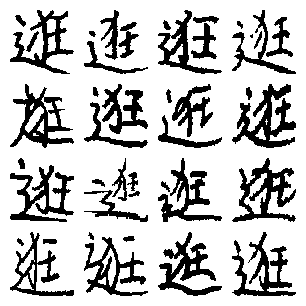 逛逛逛逛
逛逛逛逛
逛逛逛逛
逛逛逛逛